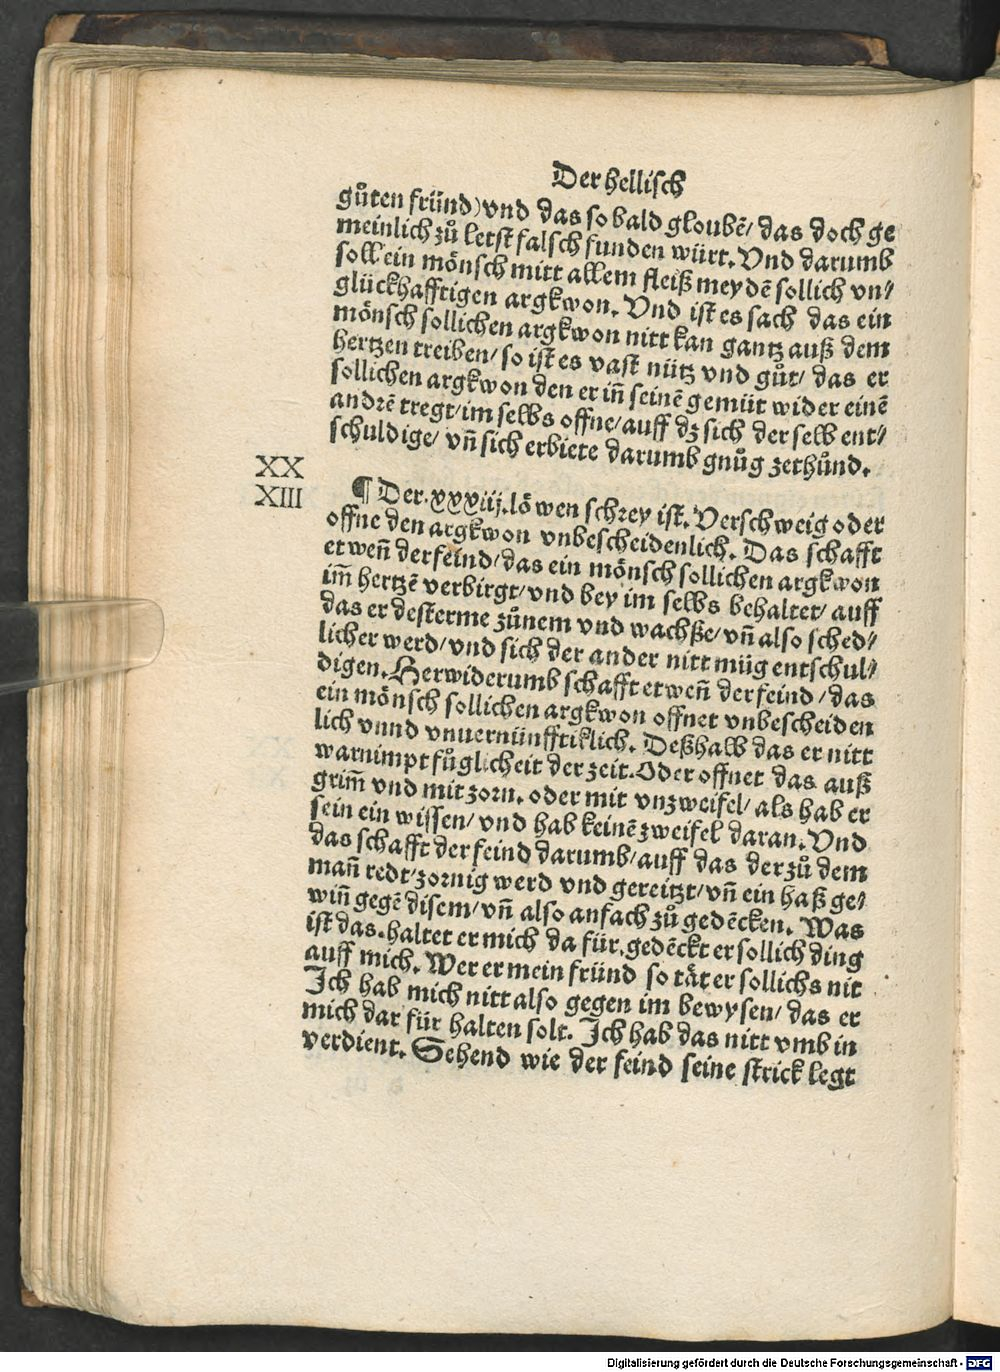 Der hellisch
gůten fründ) vnd das so bald gloubē/ das doch ge
meinlich zů letst falsch funden würt. Vnd darumb
soll ein mönsch mitt allem fleiß meydē sollich vn/
glückhafftigen argkwon. Vnd ist es sach das ein
mönsch sollichen argkwon nitt kan gantz auß dem
hertzen treiben/ so ist es vast nütz vnd gůt/ das er
sollichen argkwon den er iñ seinē gemüt wider einē
andrē tregt/ im selbs offne/ auff dz sich der selb ent/
schuldige/ vñ sich erbiete darumb gnůg zethůnd.
XX
XIII
¶ Der .xxxiij. löwen schrey ist. Verschweig oder
offne den argkwon vnbescheidenlich. Das schafft
etweñ der feind/ das ein mönsch sollichen argkwon
im̄ hertzē verbirgt/ vnd bey im selbs behaltet/ auff
das er dester me zůnem vnd wachße/ vñ also sched/
licher werd/ vnd sich der ander nitt müg entschul/
digen. Herwiderumb schafft etweñ der feind/ das
ein mönsch sollichen argkwon offnet vnbescheiden
lich vnnd vnuernünfftiklich. Deßhalb das er nitt
warnimpt fůglicheit der zeit. Oder offnet das auß
grim̄ vnd mit zorn. oder mit vnzweifel/ als hab er
sein ein wissen/ vnd hab keinē zweifel daran. Vnd
das schafft der feind darumb/ auff das der zů dem
mañ redt/ zornig werd vnd gereitzt/ vñ ein haß ge/
wiñ gegē disem/ vñ also anfach zů gedēcken. Was
ist das. haltet er mich da für. gedēckt er sollich ding
auff mich. Wer er mein fründ so tät er sollichs nit
Ich hab mich nitt also gegen im bewysen/ das er
mich dar für halten solt. Ich hab das nitt vmb in
verdient. Sehend wie der feind seine strick legt
Digitalisierung gefördert durch die Deutsche Forschungsgemeinschaft - DFG